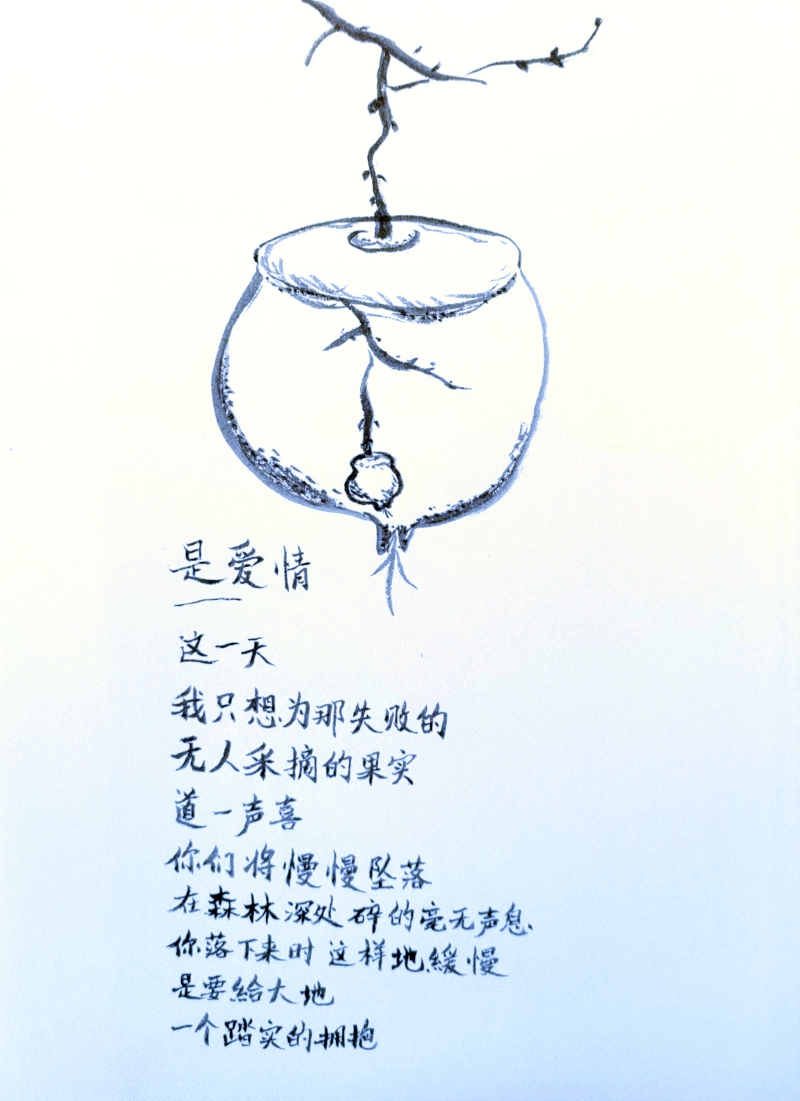 是爱情
这一天
我只想为那失败的
无人采摘的果实
道一声喜
你们将慢慢坠落
在森林深处 碎的毫无声息.
你落下来时 这样地緩慢
是要給大地
一个踏实的拥抱